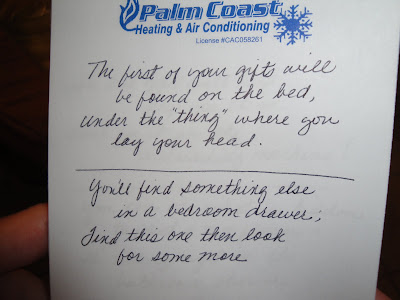 Palm Coast
Heating & Air Conditioning
License #CAC058261
The first of your gifts will
be found on the bed,
under the "thing" where you
lay your head.
You'll find something else
in a bedroom drawer;
Find this one then look
for some more